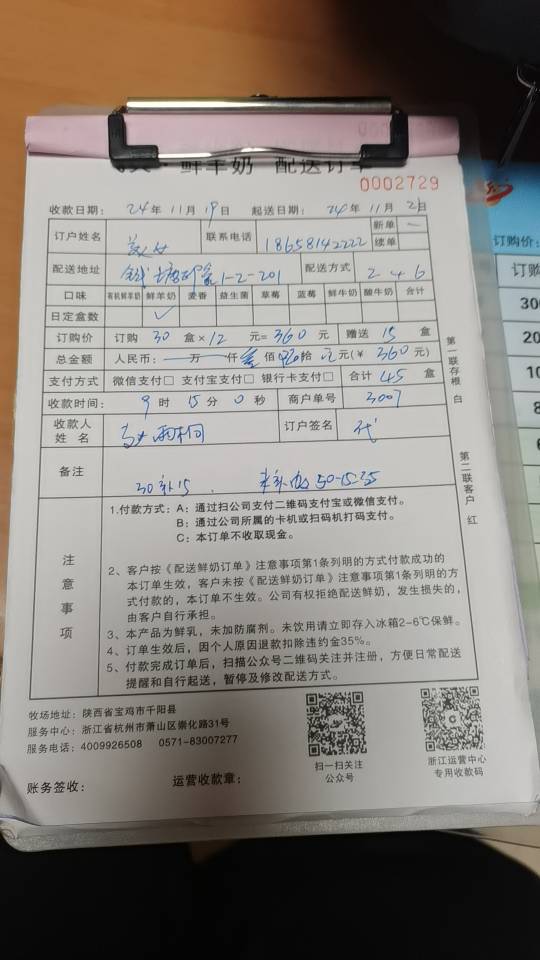 鲜羊奶 配送订单
0002729
收款日期： 24年 11月 19日 起送日期： 24年 11月 21日
订户姓名 美女 联系电话 18658142222 新单 一
续单
配送地址 1-2-201 配送方式 2 4 6
口味 有机鲜羊奶 鲜羊奶 麦香 益生菌 草莓 蓝莓 鲜牛奶 酸牛奶 合计
日定盒数 ✓
订购价 订购 30 盒×12 元=360元 赠送 15 盒
总金额 人民币： 万 仟 叁 佰 陆 拾 元(￥ 360元)
支付方式 微信支付□ 支付宝支付□ 银行卡支付□ 合计 45 盒
收款时间： 9 时 15 分 0 秒 商户单号 3007
收款人
姓 名 订户签名 代
备注 30补15. 50-15-35
注意事项
1.付款方式：A：通过扫公司支付二维码支付宝或微信支付。
B：通过公司所属的卡机或扫码机打码支付。
C：本订单不收取现金。
2、客户按《配送鲜奶订单》注意事项第1条列明的方式付款成功的
本订单生效，客户未按《配送鲜奶订单》注意事项第1条列明的方
式付款的，本订单不生效。公司有权拒绝配送鲜奶，发生损失的，
由客户自行承担。
3、本产品为鲜乳，未加防腐剂。未饮用请立即存入冰箱2-6℃保鲜。
4、订单生效后，因个人原因退款扣除违约金35%。
5、付款完成订单后，扫描公众号二维码关注并注册，方便日常配送
提醒和自行起送，暂停及修改配送方式。
第一联存根 白
第二联客户 红
牧场地址：陕西省宝鸡市千阳县
服务中心：浙江省杭州市萧山区崇化路31号
服务电话：4009926508 0571-83007277
扫一扫关注
公众号
浙江运营中心
专用收款码
账务签收： 运营收款章：
订购价：
订购
300
200